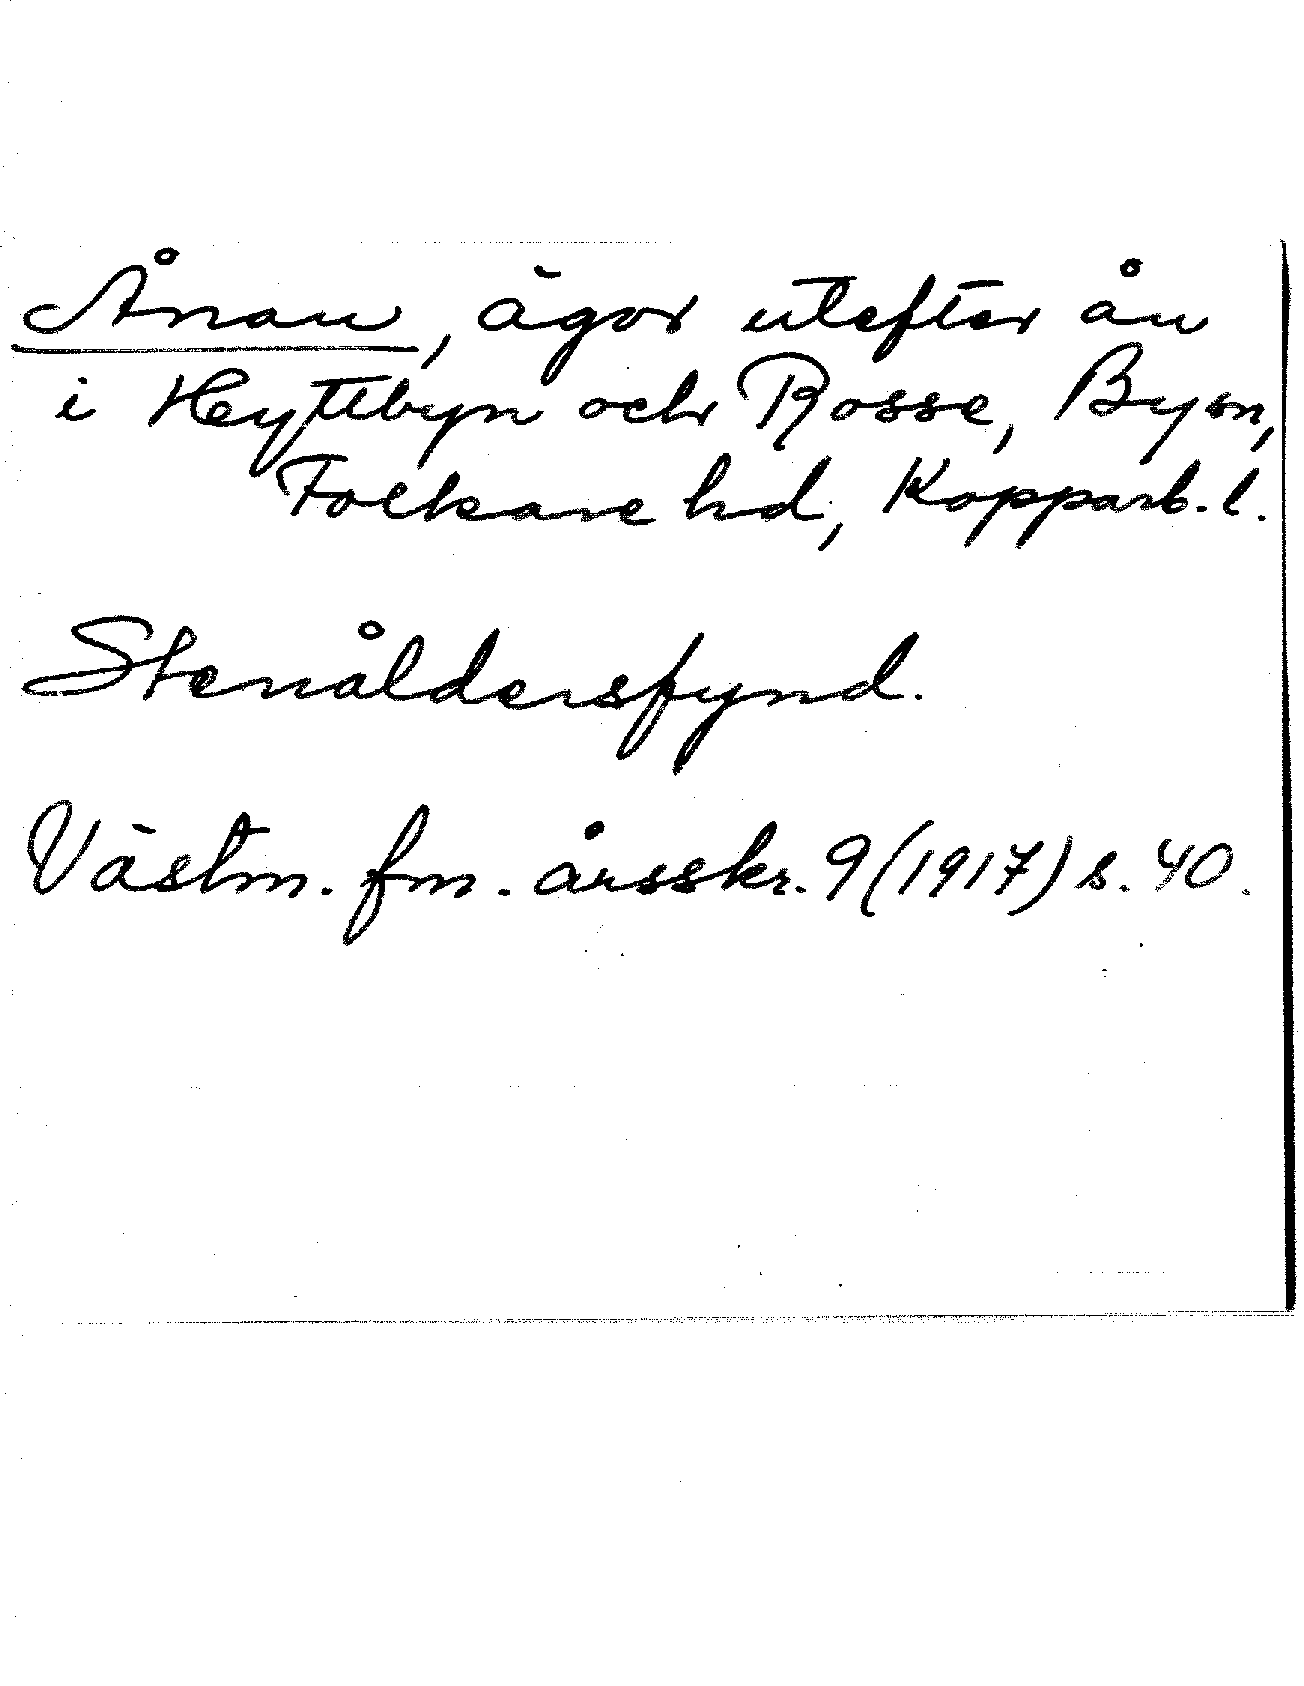 Ånau, ägor utefter ån
i Hyttbyn och Rosse, By sn,
Folkare hd, Kopparb. l.
Stenåldersfynd.
Västm. fm. årsskr. 9 (1917) s. 40.